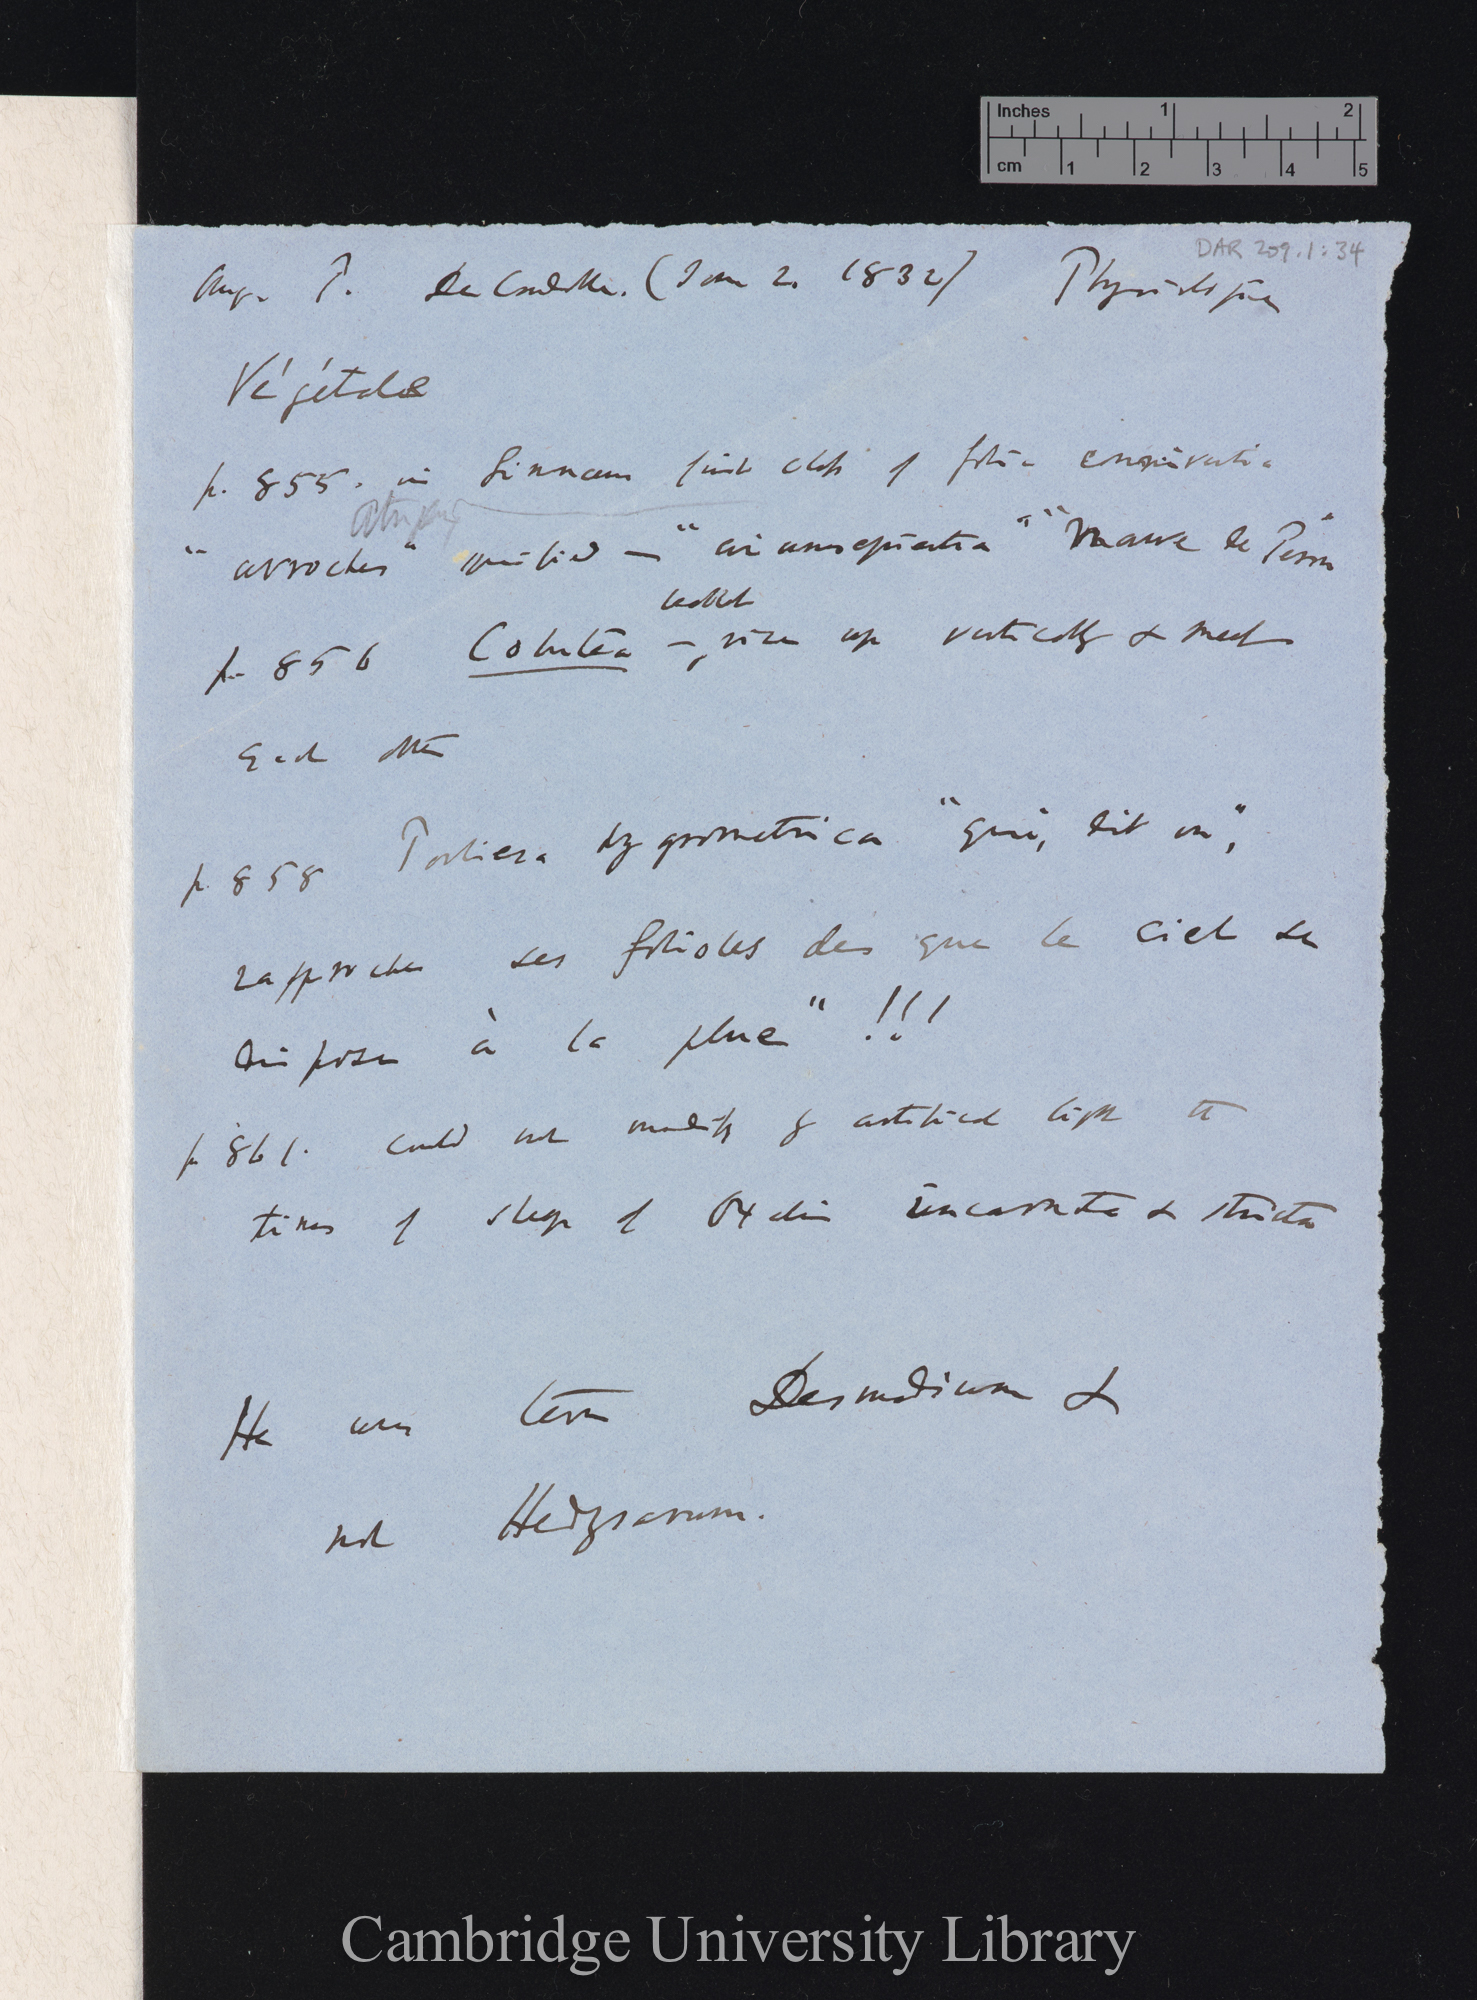 Inches 1 2
cm 1 2 3 4 5
DAR 209.1:34
Aug. P. De Candolle. (Tom 2. 1832) Physiologie
Végétale
p. 855. in Linnæus first class of folia conniventia
Atriplex
"arroches" specified — "circumsepientia" "Mauve de Perou"
leaflet
p. 856 Colutea — , rise up vertically & meet
each other
p. 858 Porliera hygrometrica "qui, dit on",
rapproche ses folioles des que le ciel se
dispose à la pluie" !!!
p 861. could not modify by artificial light the
times of sleep of Oxalis incarnata & stricta
He uses term Desmodium &
not Hedysarum.
Cambridge University Library